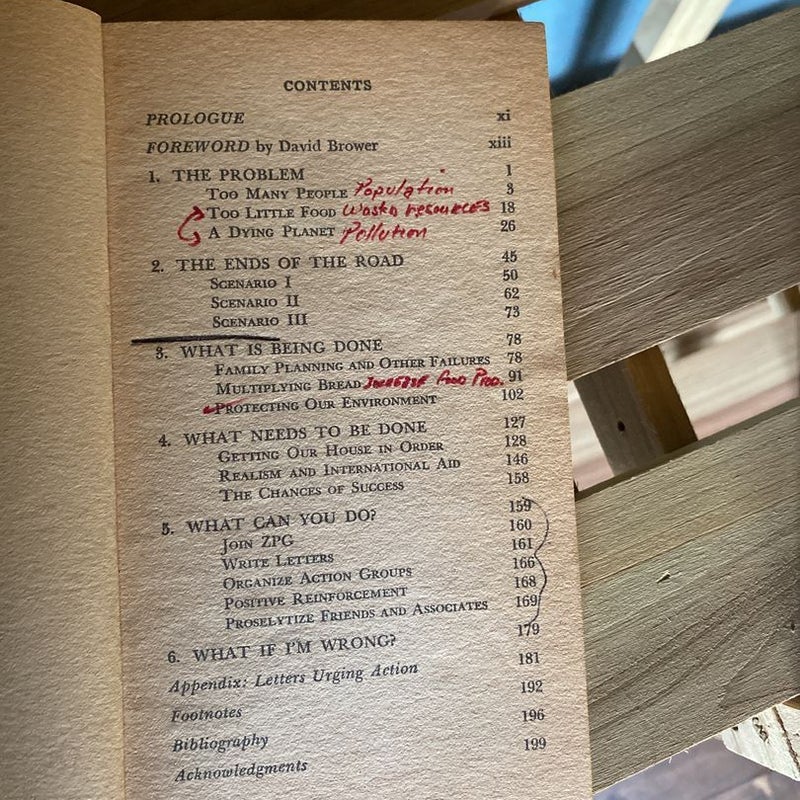 CONTENTS
PROLOGUE xi
FOREWORD by David Brower xiii
1. THE PROBLEM 1
TOO MANY PEOPLE Population 3
TOO LITTLE FOOD resources 18
A DYING PLANET Pollution 26
2. THE ENDS OF THE ROAD 45
SCENARIO I 50
SCENARIO II 62
SCENARIO III 73
3. WHAT IS BEING DONE 78
FAMILY PLANNING AND OTHER FAILURES 78
MULTIPLYING BREAD Increase Food Prod. 91
PROTECTING OUR ENVIRONMENT 102
4. WHAT NEEDS TO BE DONE 127
GETTING OUR HOUSE IN ORDER 128
REALISM AND INTERNATIONAL AID 146
THE CHANCES OF SUCCESS 158
5. WHAT CAN YOU DO? 159
JOIN ZPG 160
WRITE LETTERS 161
ORGANIZE ACTION GROUPS 166
POSITIVE REINFORCEMENT 168
PROSELYTIZE FRIENDS AND ASSOCIATES 169
6. WHAT IF I'M WRONG? 179
Appendix: Letters Urging Action 181
Footnotes 192
Bibliography 196
Acknowledgments 199